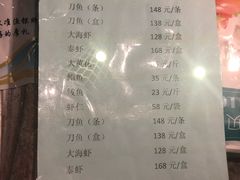 刀鱼（条） 148 元/条
刀鱼（盒） 138 元/盒
大海虾 128 元/盒
泰虾 168 元/盒
元/斤
鲍鱼 35 元/条
鲅鱼 23 元/斤
虾仁 58 元/袋
刀鱼（条） 148 元/条
刀鱼（盒） 138 元/盒
大海虾 128 元/盒
泰虾 168 元/盒